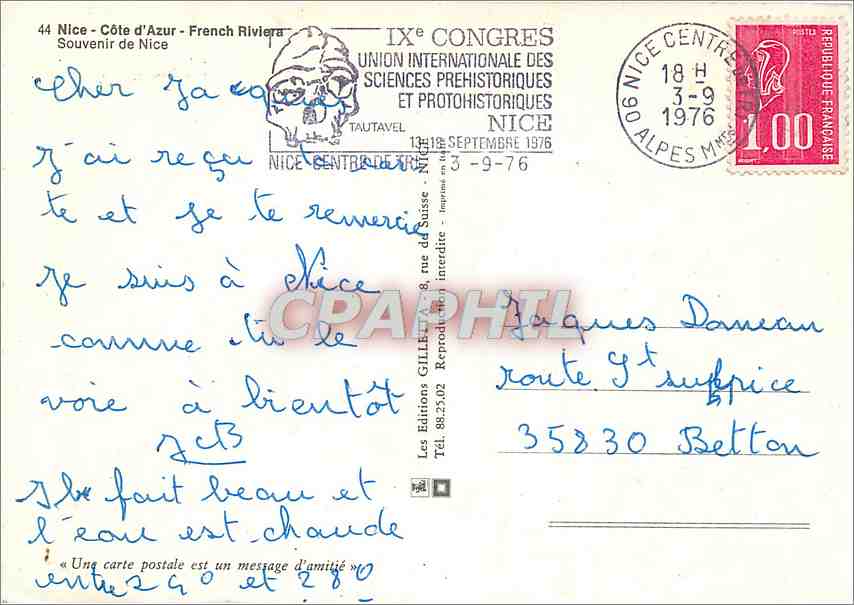 44 Nice - Côte d'Azur - French Riviera
Souvenir de Nice
IXe CONGRES
UNION INTERNATIONALE DES
SCIENCES PREHISTORIQUES
ET PROTOHISTORIQUES
NICE
TAUTAVEL
13-18 SEPTEMBRE 1976
NICE-CENTRE DE TRI 3 -9-76
06 NICE CENTRE DE TRI
18 H
3-9
1976
ALPES MMES
POSTES
REPUBLIQUE FRANÇAISE
1,00
Cher Jacques
J'ai reçu ta car
te et je te remercie
je suis à Nice
comme tu le
voie à bientôt
JCB
Il fait beau et
l'eau est chaude
entre 24° et 28°
« Une carte postale est un message d'amitié »
Les Editions GILLETTA - 8, rue de Suisse - NICE
Tél. 88.25.02 Reproduction interdite - Imprimé en Italie
CPAPHIL
Jaques Daneau
route St suppice
35830 Betton